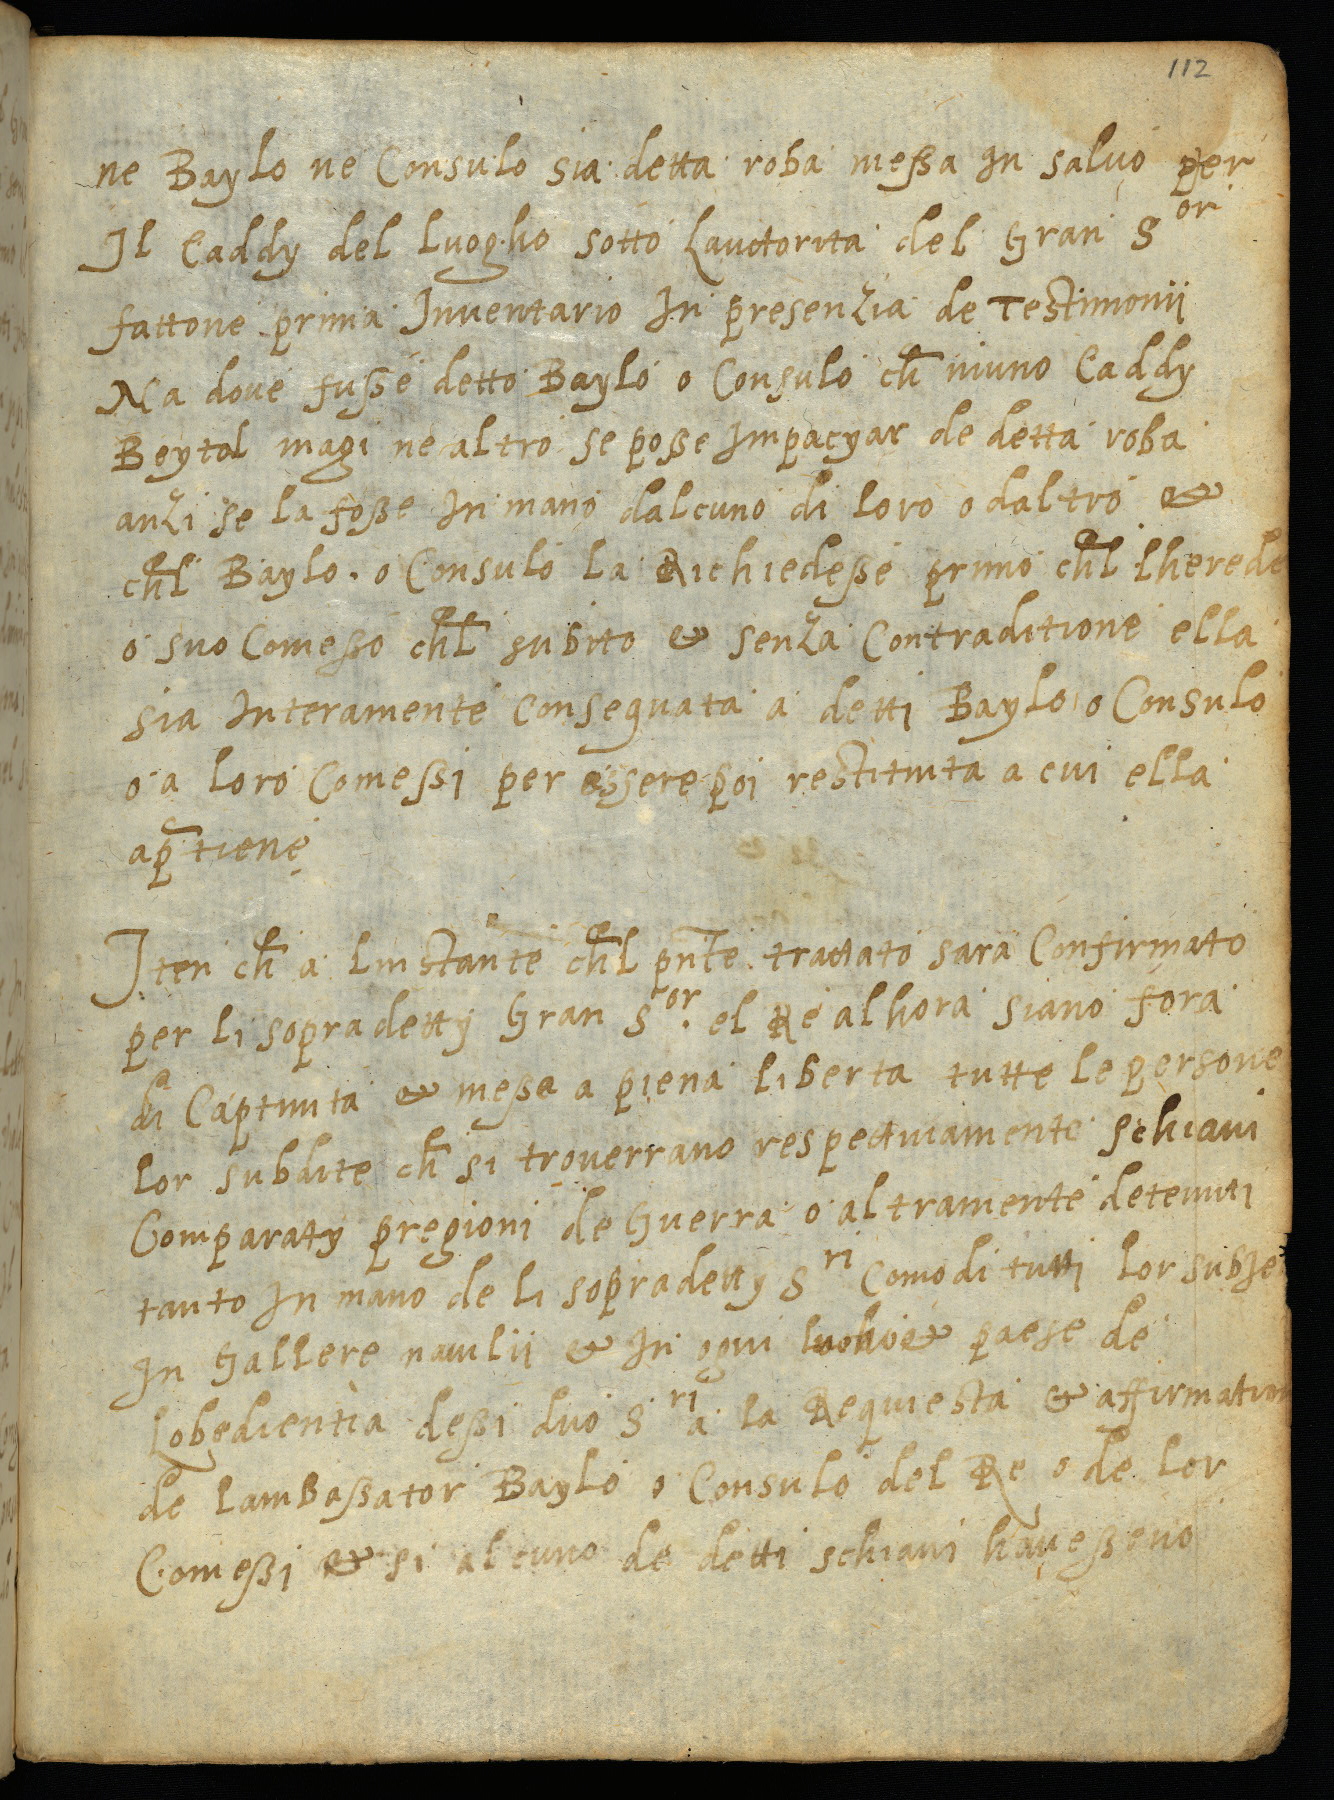 112
ne Baylo ne Consulo sia detta roba messa in salvo per
Il Caddy del luogho sotto Lauctorita del Gran S^or
fattone prima Inventario In presenzia de Testimonii
Ma dove fusse detto Baylo o Consulo ch̃ niuno Caddy
Beytol magi ne altro se posse Impacyar de detta roba
anzi se la fosse In mano dalcuno di loro o daltro &
ch̃l Baylo . o Consulo la Richiedesse primo ch̃l lherede
o suo Comesso ch̃l subito & senza Contraditione ella
sia Interamente Consegnata a detti Baylo o Consulo
o a loro Comessi per essere poi restituita a cui ella
ap̃tiene
Iten ch̃ a linstante ch̃l pñte trattato sara Confirmato
per li sopradetty Gran S^or. el Re alhora siano fora
di Captivita & messe a piena liberta tutte le persone
lor subdite ch̃ si troverrano respectiviamente schiavi
Comparaty pregioni de Guerra o altramente detenuti
tanto In mano de li sopradetty S^ri Como di tutti lor subie
In Gallere navilii & In ogni luohi & paese de
Lobedientia dessi duo S^ri a la Requiesta & affirmation
de lambassator Baylo o Consulo del Re o de lor
Comessi & si alcuno de detti schiavi havesseno